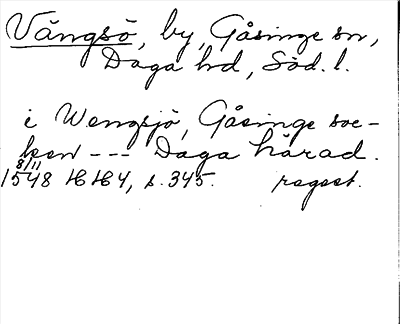 Vängsö, by, Gåsinge sn,
Daga hd, Söd. l.
i Wengsjö, Gåsinge soc-
ken --- Daga härad.
8/11
1548 HH 4, s. 345. regest.